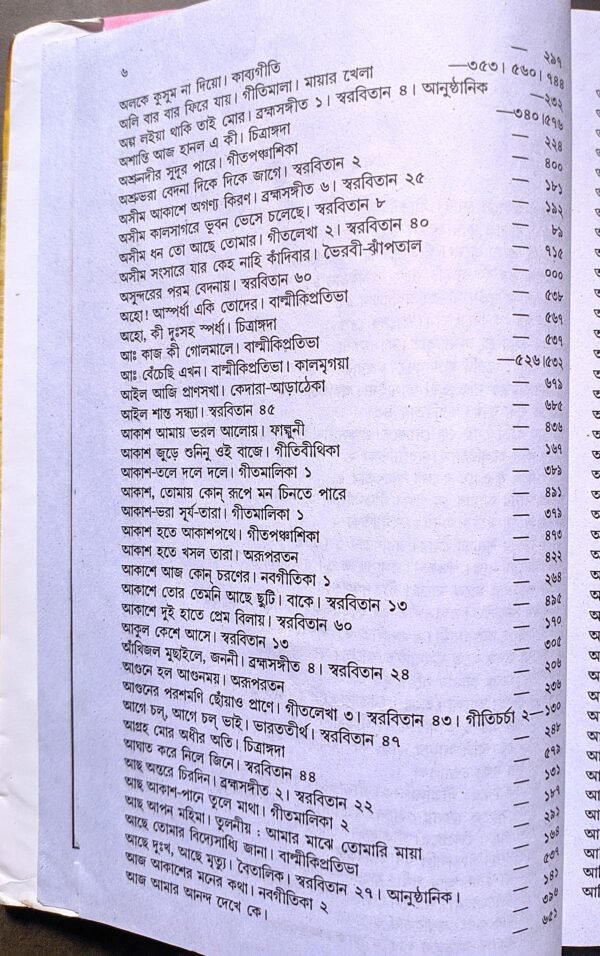 ৬
অলকে কুসুম না দিয়ো। কাব্যগীতি — ২৯৭
অলি বার বার ফিরে যায়। গীতিমালা। মায়ার খেলা —৩৫৩। ৫৬০। ৭৪৪
অল্প লইয়া থাকি তাই মোর। ব্রহ্মসঙ্গীত ১। স্বরবিতান ৪। আনুষ্ঠানিক —২৩২
অশান্তি আজ হানল এ কী। চিত্রাঙ্গদা —৩৪০।৫৭৬
অশ্রুনদীর সুদূর পারে। গীতপঞ্চাশিকা — ২২৪
অশ্রুভরা বেদনা দিকে দিকে জাগে। স্বরবিতান ২ — ৪০০
অসীম আকাশে অগণ্য কিরণ। ব্রহ্মসঙ্গীত ৬। স্বরবিতান ২৫ — ১৮১
অসীম কালসাগরে ভুবন ভেসে চলেছে। স্বরবিতান ৮ — ১৯২
অসীম ধন তো আছে তোমার। গীতলেখা ২। স্বরবিতান ৪০ — ৮৯
অসীম সংসারে যার কেহ নাহি কাঁদিবার। ভৈরবী-ঝাঁপতাল — ৭১৫
অসুন্দরের পরম বেদনায়। স্বরবিতান ৬০ — ০০০
অহো! আস্পর্ধা একি তোদের। বাল্মীকিপ্রতিভা — ৫৩৮
অহো, কী দুঃসহ স্পর্ধা। চিত্রাঙ্গদা — ৫৬৭
আঃ কাজ কী গোলমালে। বাল্মীকিপ্রতিভা — ৫৩৭
আঃ বেঁচেছি এখন। বাল্মীকিপ্রতিভা। কালমৃগয়া —৫২৬।৫৩২
আইল আজি প্রাণসখা। কেদারা-আড়াঠেকা — ৬৭৯
আইল শান্ত সন্ধ্যা। স্বরবিতান ৪৫ — ৬৮৫
আকাশ আমায় ভরল আলোয়। ফাল্গুনী — ৪৩৬
আকাশ জুড়ে শুনিনু ওই বাজে। গীতিবীথিকা — ১৬৭
আকাশ-তলে দলে দলে। গীতমালিকা ১ — ৩৮৯
আকাশ, তোমায় কোন্ রূপে মন চিনতে পারে — ৪৯১
আকাশ-ভরা সূর্য-তারা। গীতমালিকা ১ — ৩৭৯
আকাশ হতে আকাশপথে। গীতপঞ্চাশিকা — ৪৭৩
আকাশ হতে খসল তারা। অরূপরতন — ৪২২
আকাশে আজ কোন্ চরণের। নবগীতিকা ১ — ২৬৪
আকাশে তোর তেমনি আছে ছুটি। বাকে। স্বরবিতান ১৩ — ৪৯৫
আকাশে দুই হাতে প্রেম বিলায়। স্বরবিতান ৬০ — ১৭০
আকুল কেশে আসে। স্বরবিতান ১৩ — ৩০৫
আঁখিজল মুছাইলে, জননী। ব্রহ্মসঙ্গীত ৪। স্বরবিতান ২৪ — ২০৬
আগুনে হল আগুনময়। অরূপরতন — ২৩৬
আগুনের পরশমণি ছোঁয়াও প্রাণে। গীতলেখা ৩। স্বরবিতান ৪৩। গীতিচর্চা ২—১৩০
আগে চল্, আগে চল্ ভাই। ভারততীর্থ। স্বরবিতান ৪৭ — ২৪৮
আগ্রহ মোর অধীর অতি। চিত্রাঙ্গদা — ৫৭৯
আঘাত করে নিলে জিনে। স্বরবিতান ৪৪ — ১৩১
আছ অন্তরে চিরদিন। ব্রহ্মসঙ্গীত ২। স্বরবিতান ২২ — ১৮৭
আছ আকাশ-পানে তুলে মাথা। গীতমালিকা ২ — ২৯১
আছ আপন মহিমা। তুলনীয় : আমার মাঝে তোমারি মায়া — ১৬৪
আছে তোমার বিদ্যেসাধ্যি জানা। বাল্মীকিপ্রতিভা — ৫৩৭
আছে দুঃখ, আছে মৃত্যু। বৈতালিক। স্বরবিতান ২৭। আনুষ্ঠানিক। — ১৪১
আজ আকাশের মনের কথা। নবগীতিকা ২ — ৩৯৬
আজ আমার আনন্দ দেখে কে। — ৬৫১